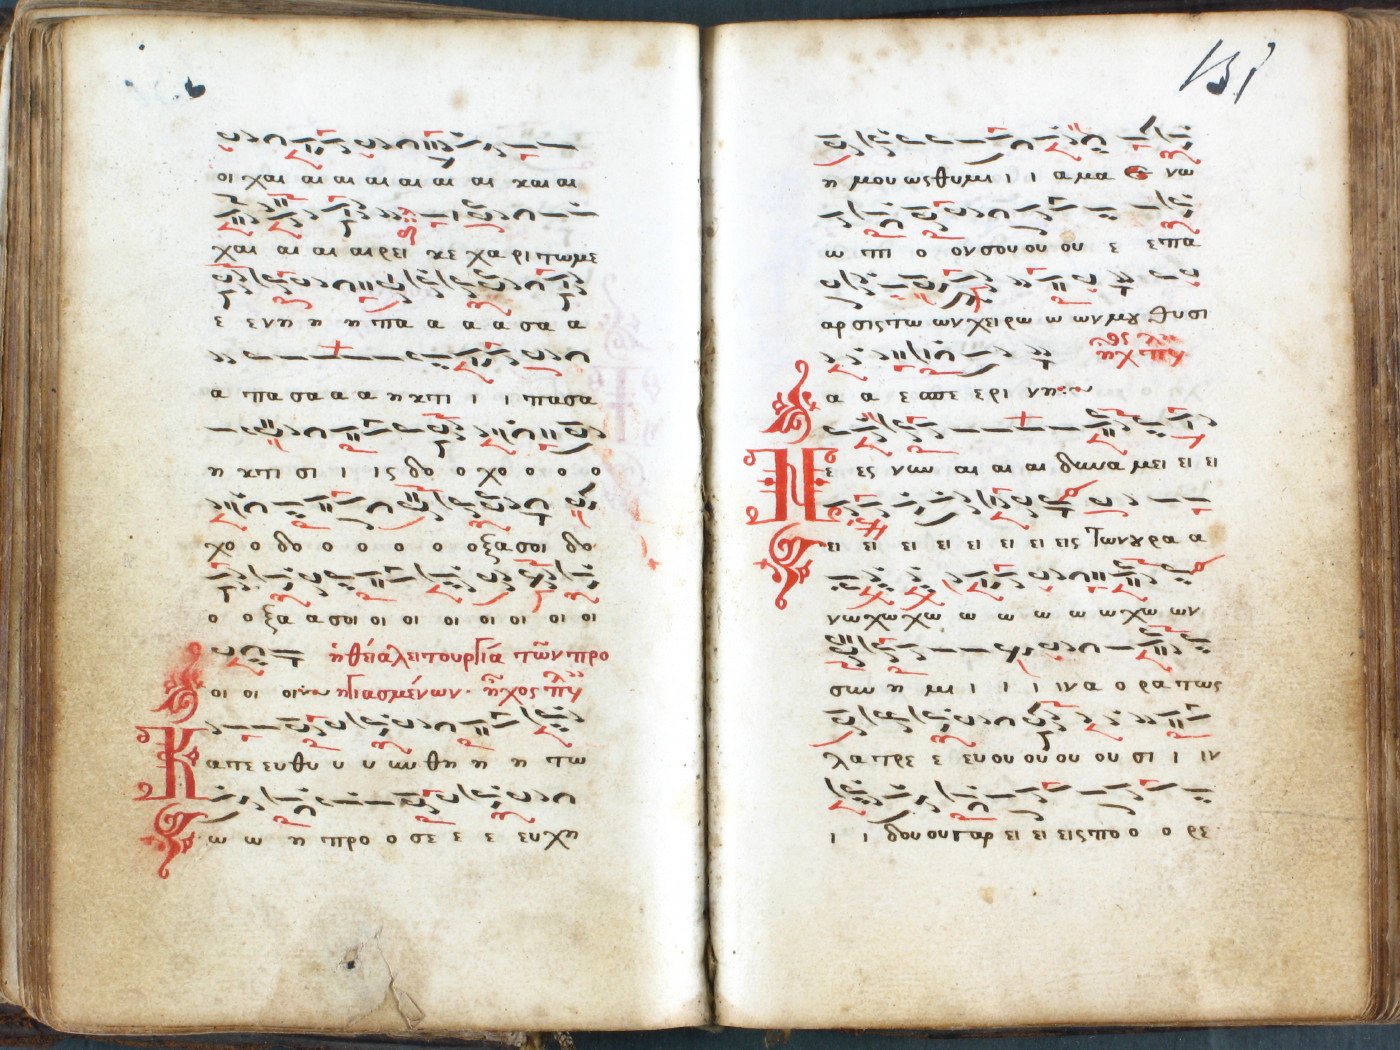 οι χαι αι αι αι αι αι αι και αι
χαι αι αι αιρει κε χα ρι τωμε
ε ενη η η πα α α α σα α
α πα σα α α η κτι ι ι πασα
η κτι σι ι ις δο ο χο ο ο ο
χο ο δο ο ο ο ο οξασοι δο
ο οξα α σοι οι οι οι οι οι οι
ἡ θεία λειτουργία τῶν προ
οι οι οι ηγιασμένων. ἦχος πλ
Κατε ευθυ υ υ υν θη η η τω
ω ω η προ ο σε ε ε ευχη
131
η μου ως θυμι ι ι α μα ε νω
ω πι ο ον σου ου ου ε επα
αρ σις τω ων χειρω ω ων μου θυσι
α α ε σπε ερι νη ἦχ πλ
Νε ες νυν αι αι αι δυνα μει ει ει
ει ει ει ει ει ει ει εις Των ουρα α
νω χω χω ω ω ω ω ω χω ων
συν η μι ι ι ι ιν α ο ρα τως
λατρε ε ευ ου ου ου ου σι ι ιν
ι ι δου ου γαρ ει ει εις πο ο ο ρε